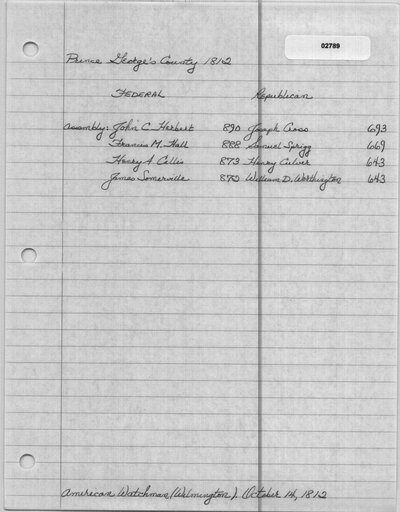 02789
Prince George's County 1812
FEDERAL Republican
Assembly: John C. Herbert 890 Joseph Cross 693
Francis M. Hall 888 Samuel Sprigg 669
Henry A. Callis 873 Henry Culver 643
James Somerville 872 William D. Worthington 643
American Watchman (Wilmington). October 14, 1812